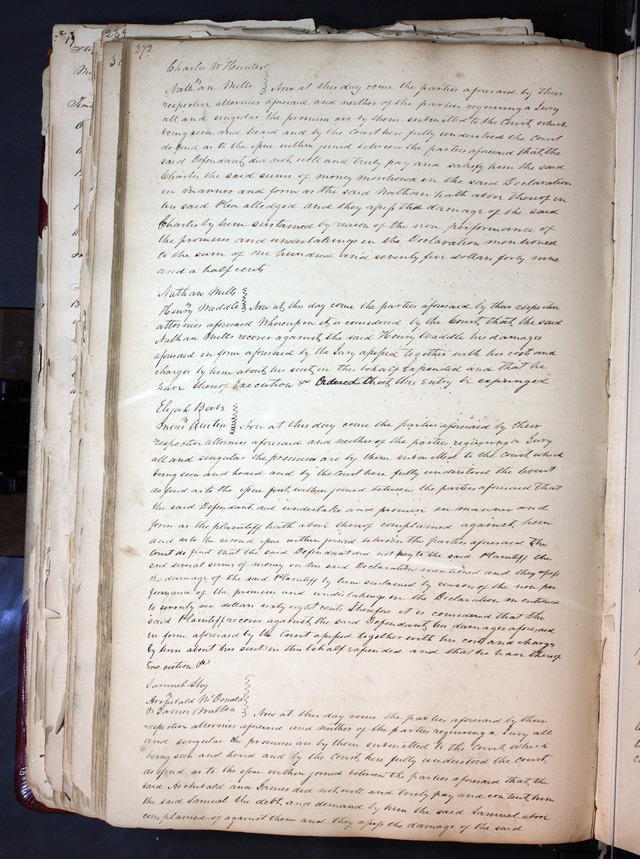 239
372
Charles W Hunter
vs
Nathan Mills } Now at this day come the parties aforesaid by their
respective attornies aforesaid and neither of the parties requiring a Jury
all and singular the premises are by them submitted to the Court, which
being seen and heard and by the Court here fully understood the Court
do find as to the issue within joined between the parties aforesaid that the
said Defendant did not well and truly pay and satisfy him the said
Charles the said sums of money mentioned in the said Declaration
in manner and form as the said Nathan hath above thereof in
his said Plea alledged and they assess the damage of the said
Charles by him sustained by reason of the non performance of
the promises and undertakings in the Declaration mentioned
to the sum of one hundred and seventy five dollars forty nine
and a half cents
Nathan Mills
vs
Henry Waddle } Now at this day come the parties aforesaid by their respective
attornies aforesaid Whereupon it is considered by the Court, that the said
Nathan Mills recover against the said Henry Waddle his damages
aforesaid in form aforesaid by the Jury assessed together with his costs and
charges by him about his suit in this behalf Expended and that he
have thereof Execution &c Ordered that this Entry be expunged
Elijah Beebe
vs
Austin } Now at this day come the parties aforesaid by their
respective attornies aforesaid and neither of the parties requiring a Jury
all and singular the premises are by them submitted to the Court, which
being seen and heard and by the Court here fully understood the Court
do find as to the issue first within joined between the parties aforesaid that
the said Defendant did undertake and promise in manner and
form as the plaintiff hath above thereof complained against him
and as to the second issue within joined between the parties aforesaid the
Court do find that the said Defendant did not pay to the said Plaintiff the
said several sums of money in his said Declaration mentioned and they assess
the damage of the said Plaintiff by him sustained by reason of the non per
formance of the promises and undertakings in the Declaration mentioned
to seventy six dollars sixty eight cents Therefore it is considered that the
said Plaintiff recover against the said Defendant, his damages aforesaid
in form aforesaid by the Court assessed together with his costs and charges
by him about his suit in this behalf expended and that he have thereof
Execution &c
Samuel Shy
vs
Archibald McDonald
& James Walton } Now at this day come the parties aforesaid by their
respective attornies aforesaid and neither of the parties requiring a Jury all
and singular the premises are by them submitted to the Court, which
being seen and heard and by the Court here fully understood the Court
do find, as to the issue within joined between the parties aforesaid that, the
said Archibald and James did not well and truly pay and content him
the said Samuel the debt, and demand by him the said Samuel above
complained of against them and they assess the damage of the said